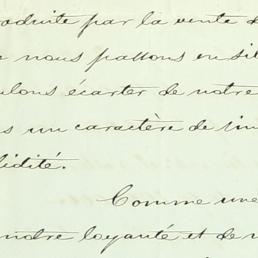 roduite par la vente d
e nous passons en sil
ulons écarter de notre
s un caractère de tim
idité.
Comme une
ndre loyauté et de